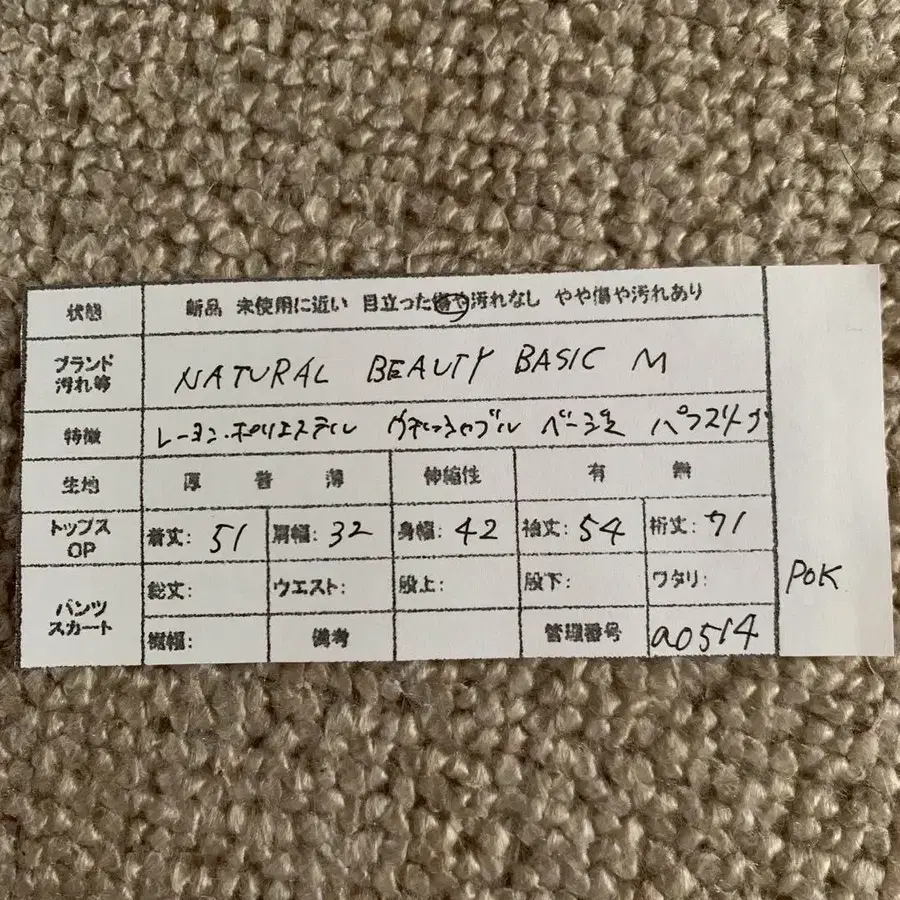 状態 新品 未使用に近い 目立った傷や汚れなし やや傷や汚れあり
ブランド 汚れ等 NATURAL BEAUTY BASIC M
特徴 レーヨン.ポリエステル ウォッシャブル ベージュ パフスリーブ
生地 厚 普 薄 伸縮性 有 無
トップス OP 着丈: 51 肩幅: 32 身幅: 42 袖丈: 54 裄丈: 71
パンツ スカート 総丈: ウエスト: 股上: 股下: ワタリ:
裾幅: 備考 管理番号 a0514
POK